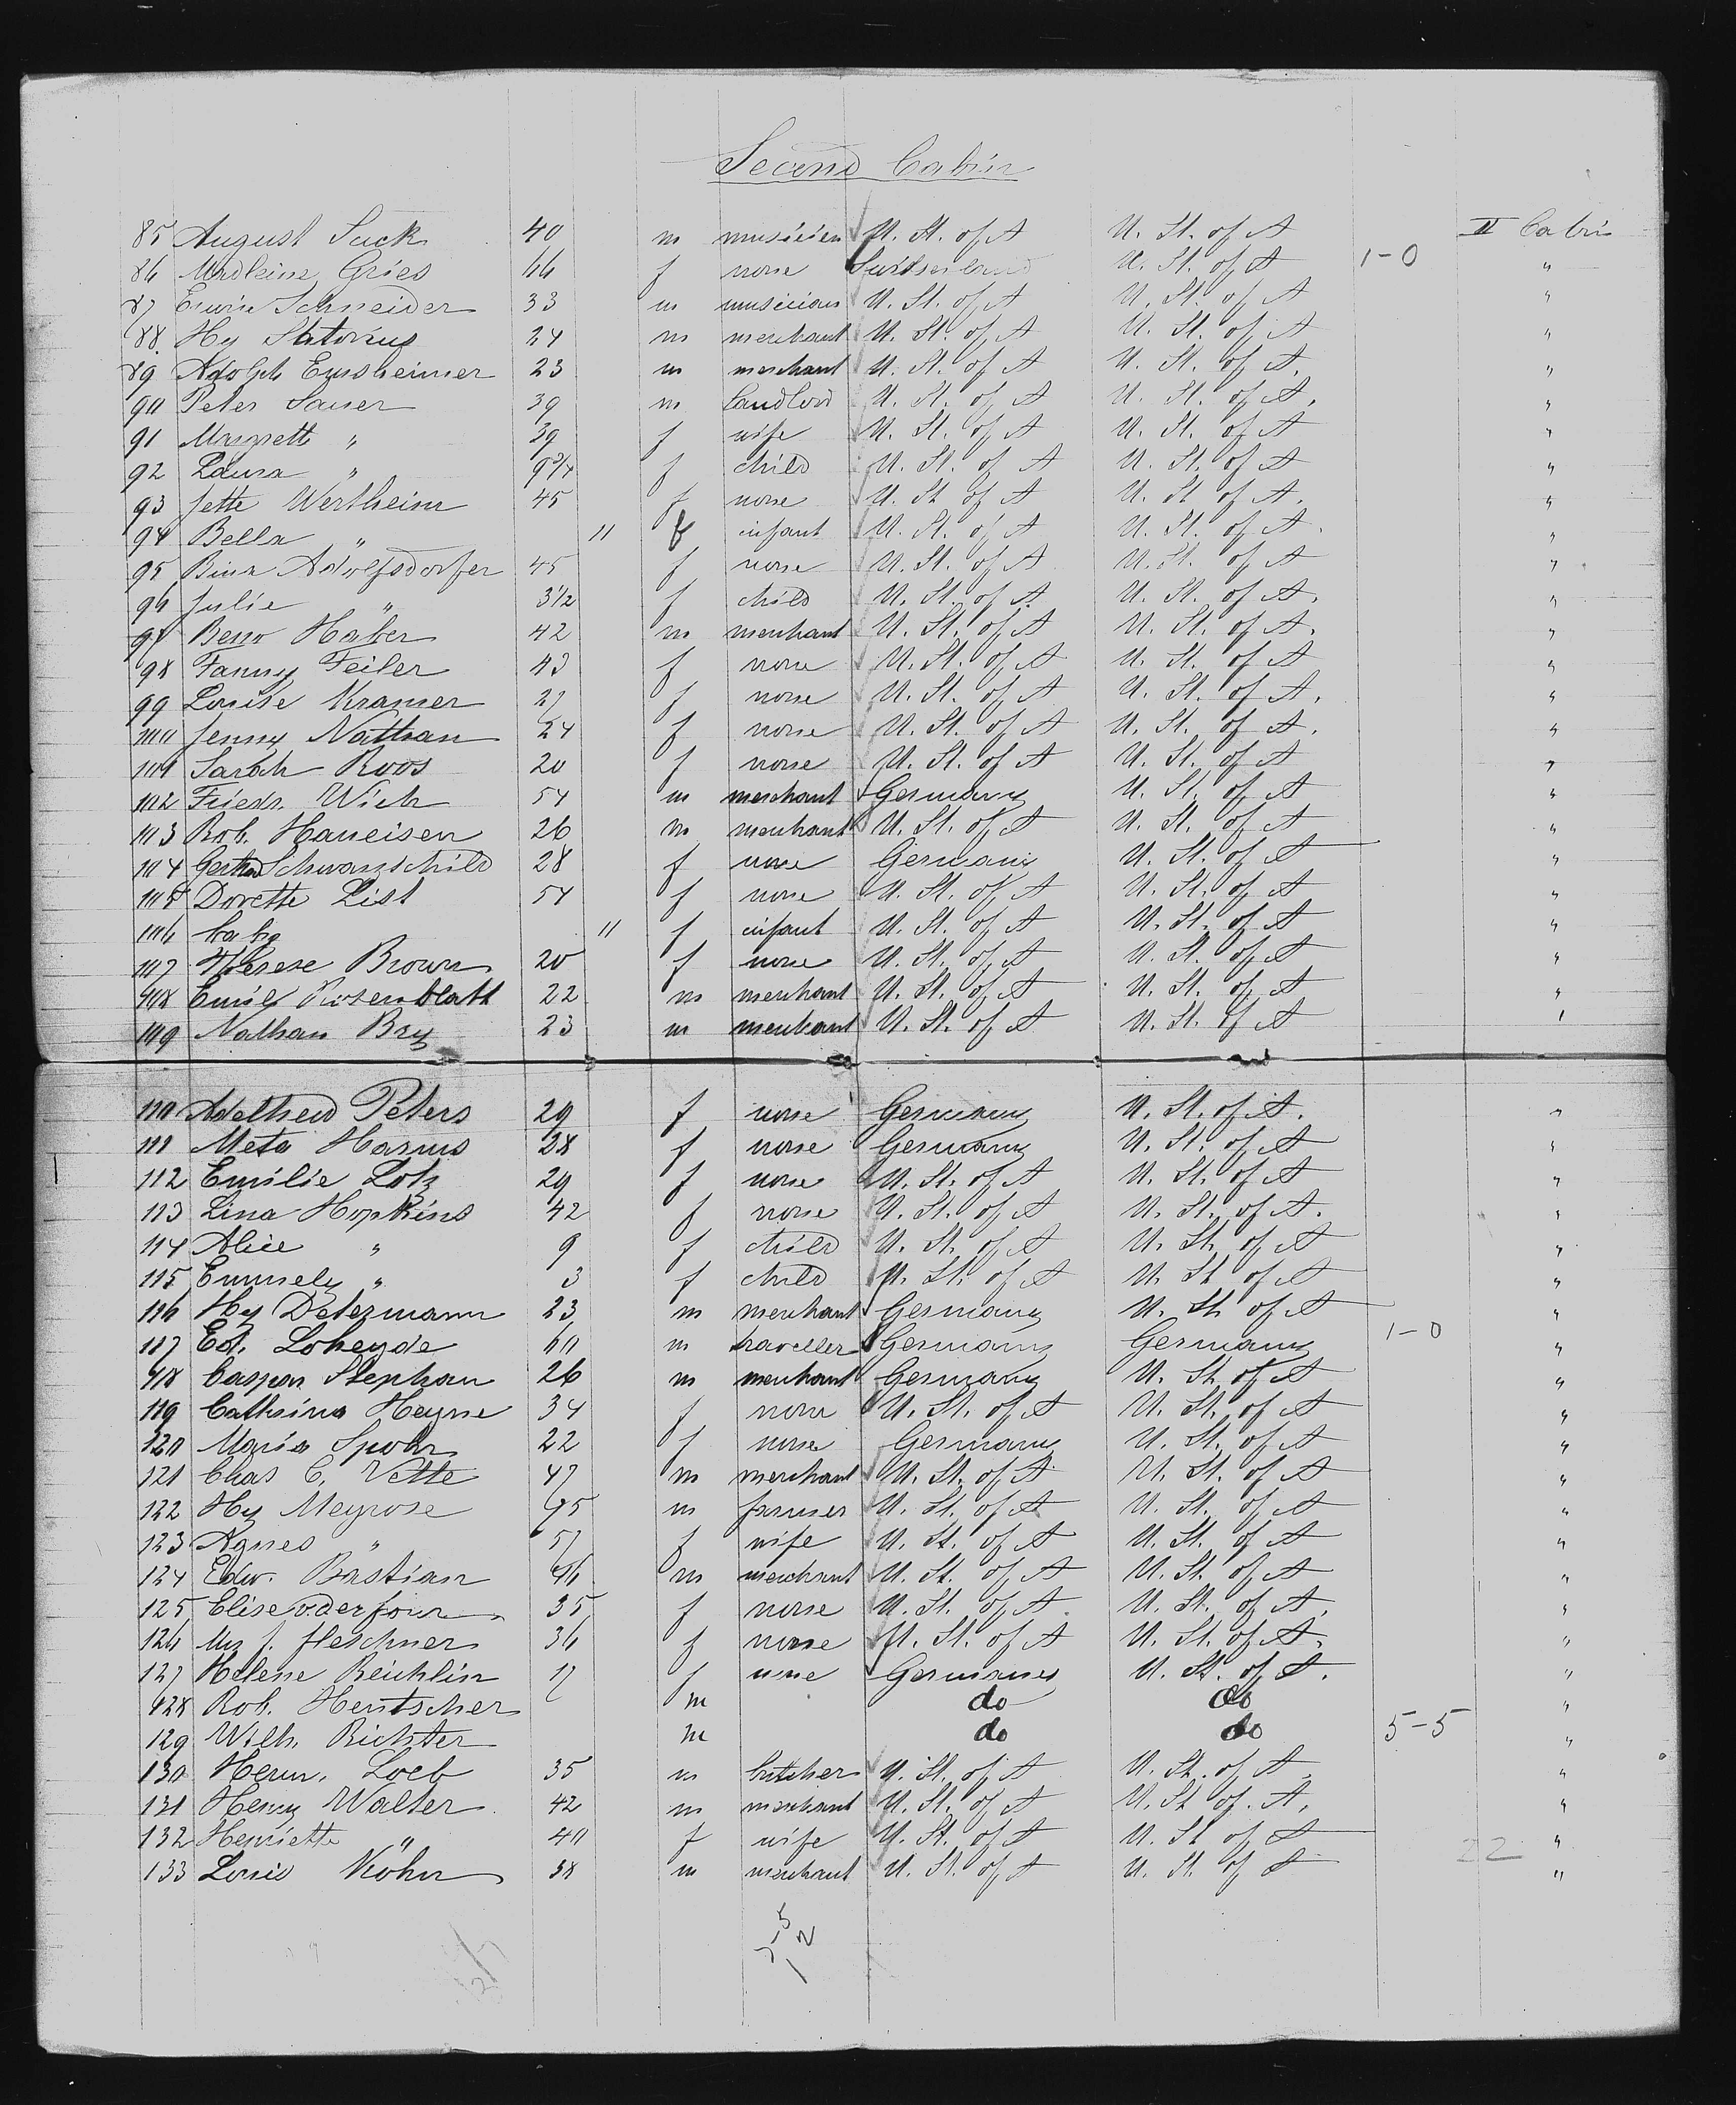 Second Cabin
85 August Suck 40 m musicien U. St. of A U. St. of A II Cabin
86 Madleine Gries 66 f none Switserland U. St. of A 1-0 "
87 Erwin Schneider 33 m musicians U. St. of A U. St. of A "
88. Hy Statorius 24 m merchant U. St. of A U. St. of A "
89 Adolph Ensheimer 23 m merchant U. St. of A U. St. of A. "
90 Peter Sauer 39 m Landlord U. St. of A U. St. of A. "
91 Margrett " 39 f wife U. St. of A U. St. of A "
92 Laura " 9 3/4 f child U. St. of A U. St. of A "
93 Jette Wertheim 45 f none U. St of A U. St of A. "
94 Bella " 11 f infant U. St. of A U. St. of A. "
95 Bina Adolfsdorfer 45 f none U. St. of A U. St. of A "
96 Julie " 3 1/2 f child U. St. of A. U. St. of A. "
97 Beno Haber 42 m merchant U. St. of A U. St. of A. "
98 Fanny Feiler 43 f none U. St. of A U. St. of A "
99 Louise Kramer 27 f none U. St. of A U. St. of A. "
100 Jenny Nathan 24 f none U. St. of A U. St. of A. "
101 Sarah Roos 20 f none U. St. of A U. St. of A "
102 Friedr. Wich 54 m merchant Germany U. St. of A "
103 Rob. Haneisen 26 m merchant U. St. of A U. St. of A "
104 Schwarzschild 28 f none Germany U. St. of A "
105 Dorette List 54 f none U. St. of A U. St. of A "
106 baby 11 f infant U. St. of A U. St. of A "
107 Therese Brown 20 f none U. St. of A U. St. of A "
108 Emil Rosenblatt 22 m merchant U. St. of A U. St. of A "
109 Nathan Bry 23 m merchant U. St. of A U. St. of A "
110 Adelheid Peters 29 f none Germany U. St. of A. "
111 Meta Harms 28 f none Germany U. St. of A "
112 Emilie Lotz 29 f none U. St. of A U. St. of A "
113 Lina Hopkins 42 f none U. St. of A U. St. of A. "
114 Alice " 9 f child U. St. of A U. St. of A "
115 Emmely " 3 f child U. St. of A U. St of A "
116 Hy Determann 23 m merchant Germany U. St of A "
117 Ed. Loheyde 60 m traveller Germany Germany 1-0 "
118 Caspar Stephan 26 m merchant Germany U. St of A "
119 Cathrina Heyne 34 f none U. St. of A U. St. of A "
120 Maria Spohr 22 f none Germany U. St. of A "
121 Chas C. Vette 47 m merchant U. St. of A U. St. of A "
122 Hy Meyrose m farmer U. St. of A U. St. of A "
123 Agnes " 57 f wife U. St. of A U. St. of A "
124 Edw. Bastian 46 m merchant U. St. of A U. St. of A "
125 Elise 35 f none U. St. of A. U. St. of A. "
126 Mrs J. Fleschner 36 f none U. St. of A U. St. of A. "
127 Helene Reichlin 17 f none Germany U. St. of A. "
128 Rob. Hentscher m do do "
129 Wilh. Richter m do do 5-5 "
130 Herm. Loeb 35 m butcher U. St. of A U. St. of A. "
131 Henry Walter 42 m merchant U. St. of A U. St of. A. "
132 Henriette " 40 f wife U. St. of A U. St of A 22 "
133 Louis Köhn 38 m merchant U. St. of A U. St. of A "